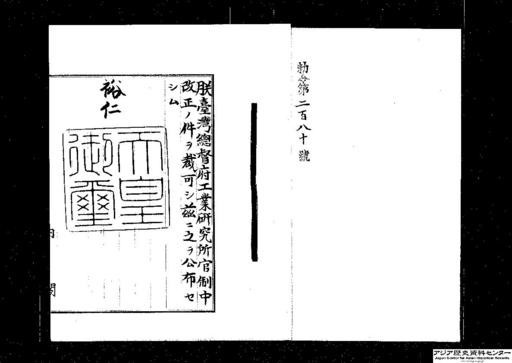 勅令第二百八十號
朕臺灣總督府工業研究所官制中
改正ノ件ヲ裁可シ茲ニ之ヲ公布セ
シム
裕仁
天皇
御璽
内閣
アジア歴史資料センター
Japan Center for Asian Historical Records